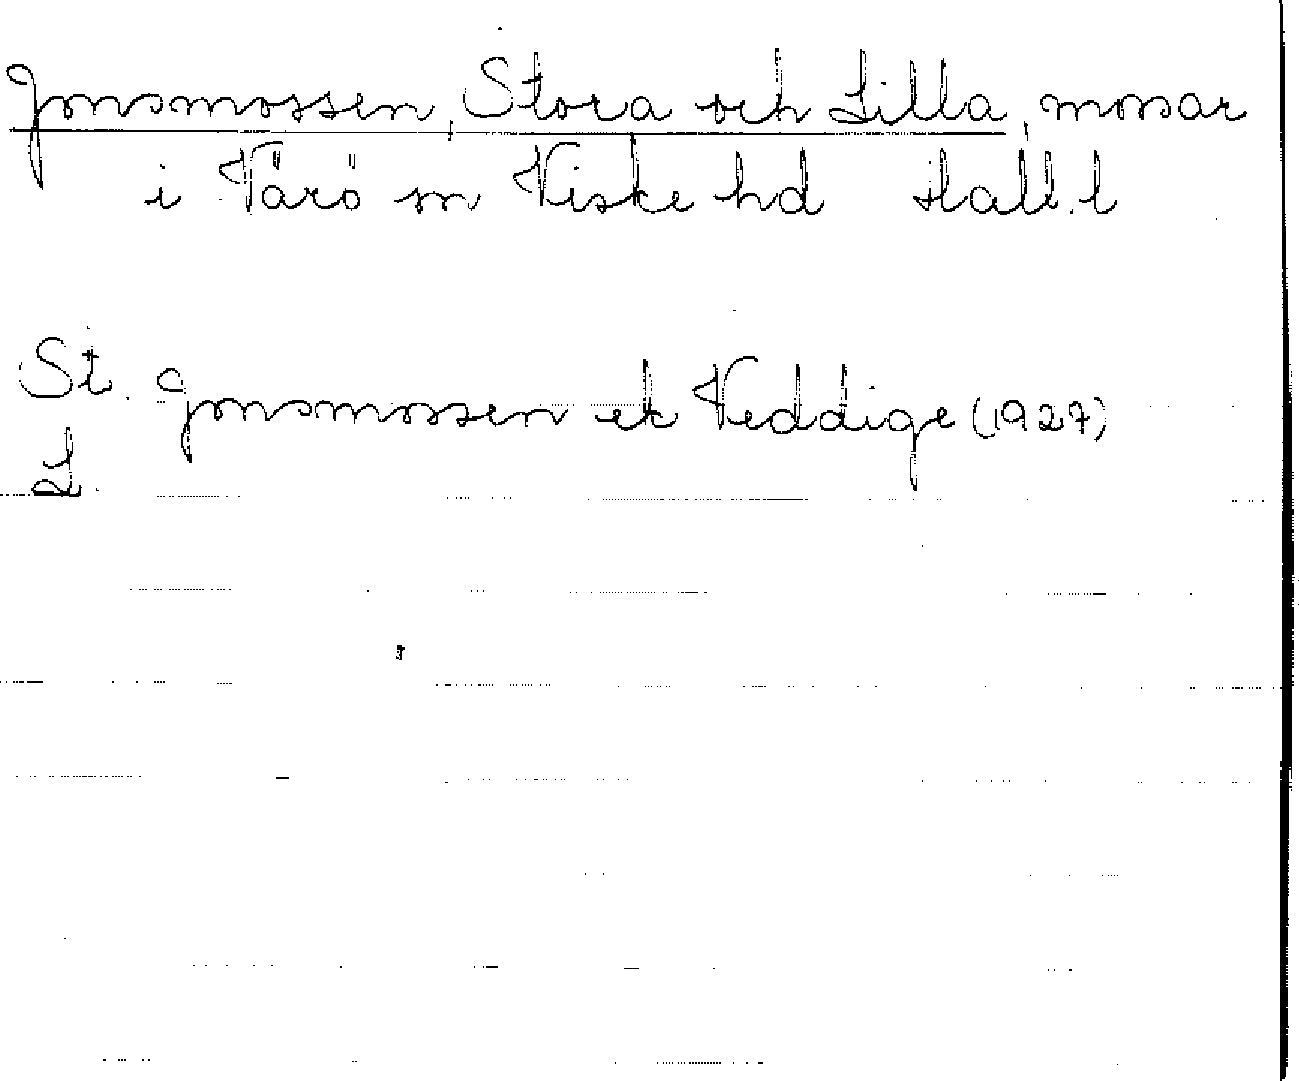 Jonsmossen, Stora och Lilla, mossar
i Värö sn Viske hd Hall. l
St. Jonsmossen ek Veddige (1927)
L.